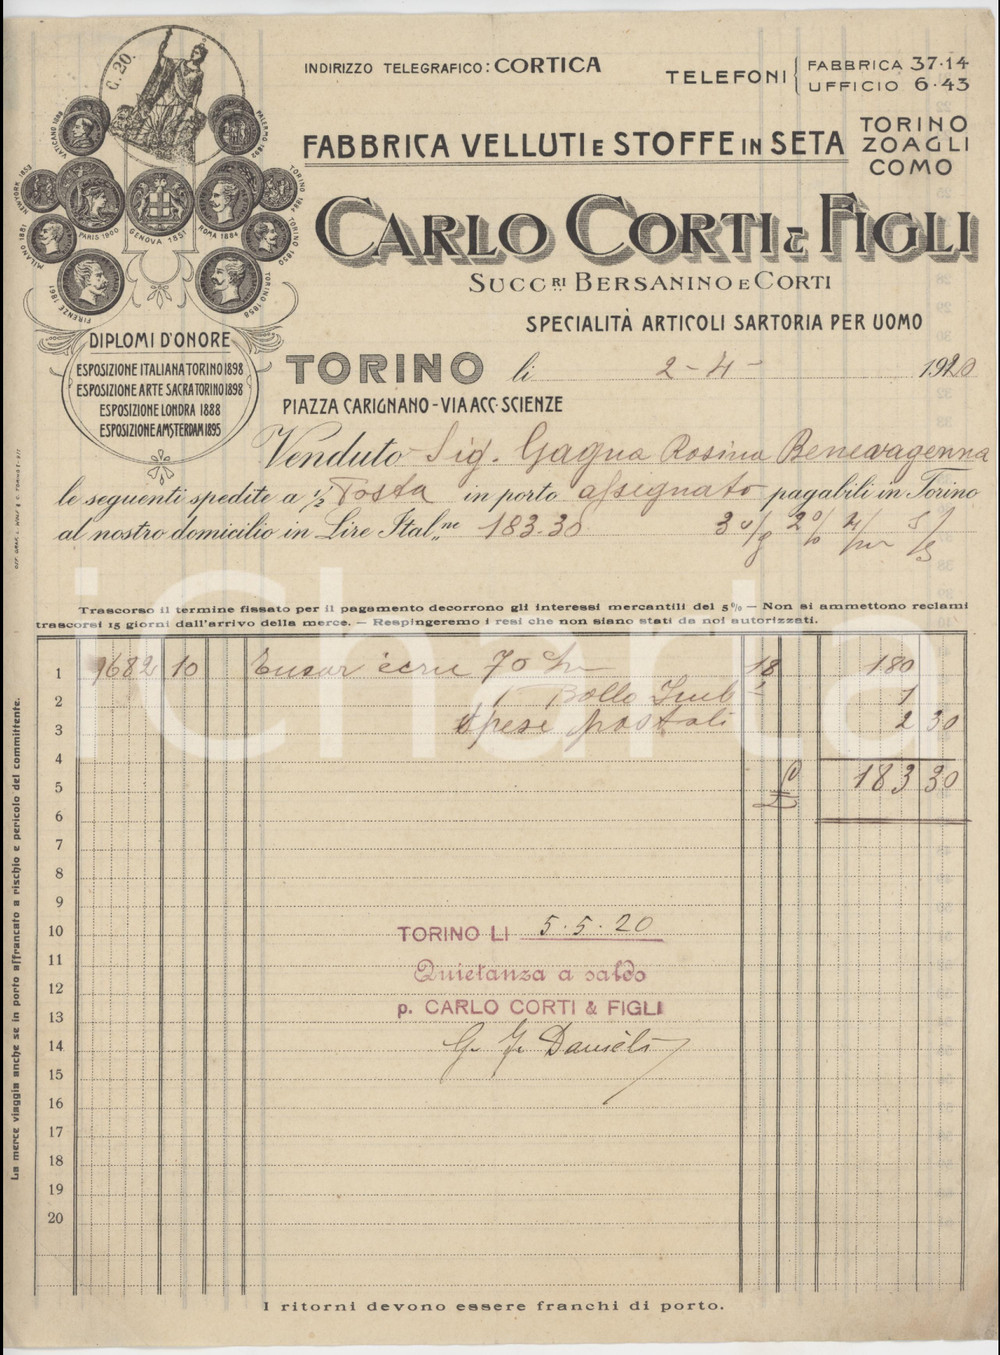 INDIRIZZO TELEGRAFICO: CORTICA
TELEFONI
FABBRICA 37·14
UFFICIO 6·43
FABBRICA VELLUTI E STOFFE IN SETA
TORINO
ZOAGLI
COMO
CARLO CORTI & FIGLI
SUCC.RI BERSANINO E CORTI
SPECIALITÀ ARTICOLI SARTORIA PER UOMO
G. 20.
VATICANO 1888
PALERMO 1892
NEW-YORK 1853
PARIS 1900
GENOVA 1851
ROMA 1884
MILANO 1881
TORINO 1850
FIRENZE 1861
TORINO 1858
DIPLOMI D'ONORE
ESPOSIZIONE ITALIANA TORINO 1898
ESPOSIZIONE ARTE SACRA TORINO 1898
ESPOSIZIONE LONDRA 1888
ESPOSIZIONE AMSTERDAM 1895
TORINO li 2-4- 1920
PIAZZA CARIGNANO - VIA ACC. SCIENZE
Venduto Sig. Gagna Rosina Benevagenna
le seguenti spedite a 1/2 Posta in porto assegnato pagabili in Torino
al nostro domicilio in Lire Ital.ne 183.30 3% 2%
Trascorso il termine fissato per il pagamento decorrono gli interessi mercantili del 5% — Non si ammettono reclami
trascorsi 15 giorni dall'arrivo della merce. — Respingeremo i resi che non siano stati da noi autorizzati.
1 9682 10 Tussor ècru 70 c/m 18 180
2 Bollo 1
3 Spese postali 2 30
4
5 183 30
6
7
8
9
10
TORINO LI 5.5.20
11
Quietanza a saldo
12
p. CARLO CORTI & FIGLI
13
14
15
16
17
18
19
20
I ritorni devono essere franchi di porto.
La merce viaggia anche se in porto affrancato a rischio e pericolo del committente.
iCharta